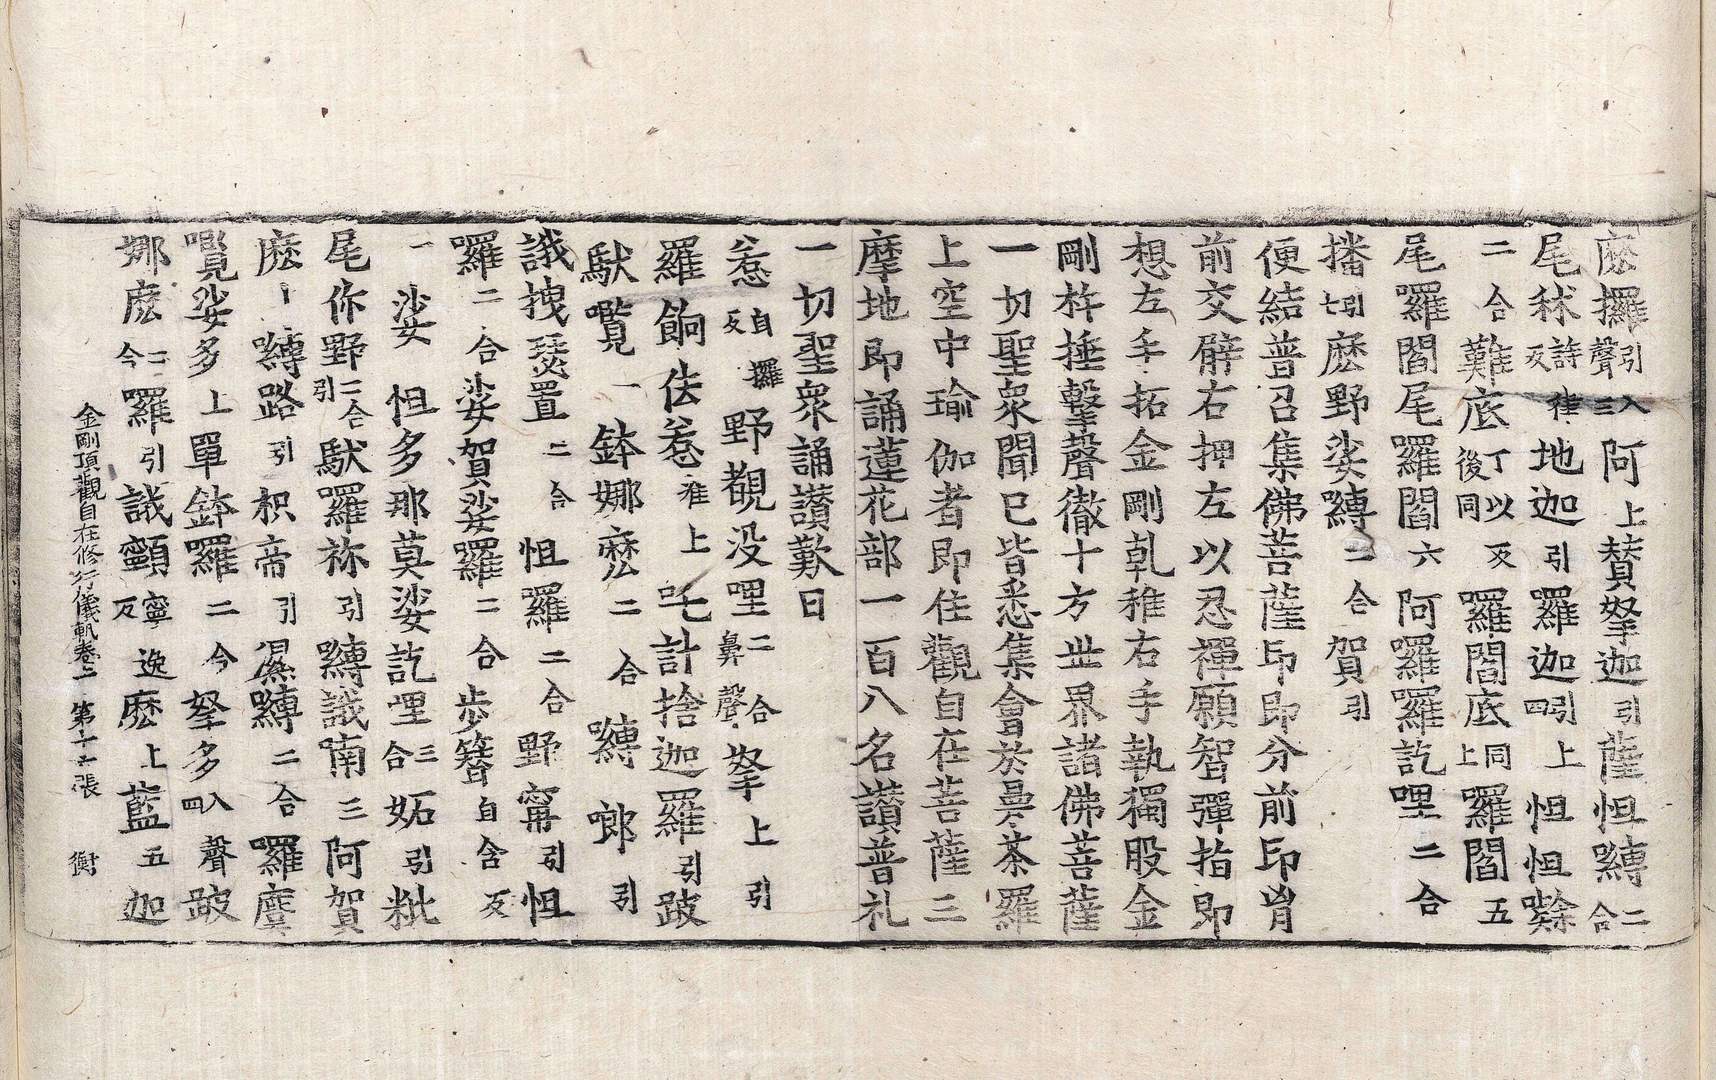 麽攞引聲入三阿上賛拏迦引薩怛嚩二合
尾秫詩律反地迦引羅迦引四上怛怛㘑
二合難底丁以反後同羅閻底同上羅閻五
尾囉閻尾囉閻六阿囉囉訖哩二合
播引七麽野娑嚩二合賀引
便結普召集佛菩薩印即分前印胷
前交臂右押左以忍禪願智彈指即
想左手拓金剛乹稚右手執獨股金
剛杵捶擊聲徹十方世界諸佛菩薩
一切聖衆聞已皆悉集會於曼荼羅
上空中瑜伽者即住觀自在菩薩三
摩地即誦蓮花部一百八名讃普礼
一切聖衆誦讃歎曰
惹自攞反野覩没哩二合鼻聲拏上引
羅餉佉惹准上七計捨迦羅引跛
馱嚂一鉢娜麽二合嚩啷引
誐拽瑟置二合怛羅二合野甯引怛
羅二合娑賀娑羅二合步簪自含反
一娑怛多那莫娑訖哩三合妬引紕
尾你野二合引馱羅祢引嚩誐南三阿賀
麽嚩路引枳帝引濕嚩二合囉麽
嚂娑多上單鉢羅二合拏多入聲四跛
娜麽二合羅引誐顫寧逸反麽上藍五迦
金剛頂觀自在修行儀軌卷上 第十六張 衡